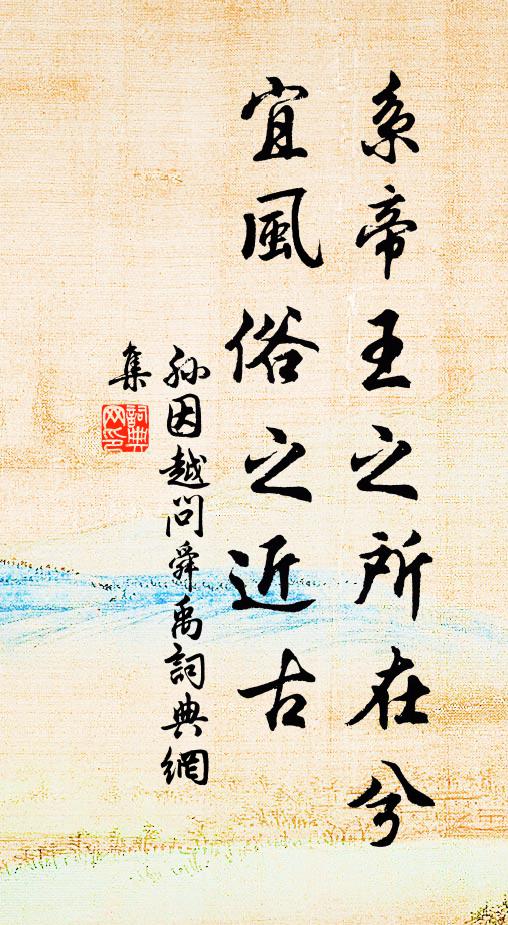 系帝王之所在兮
宜風俗之近古
孫因越問舜禹詞典網
集
詞典
网印